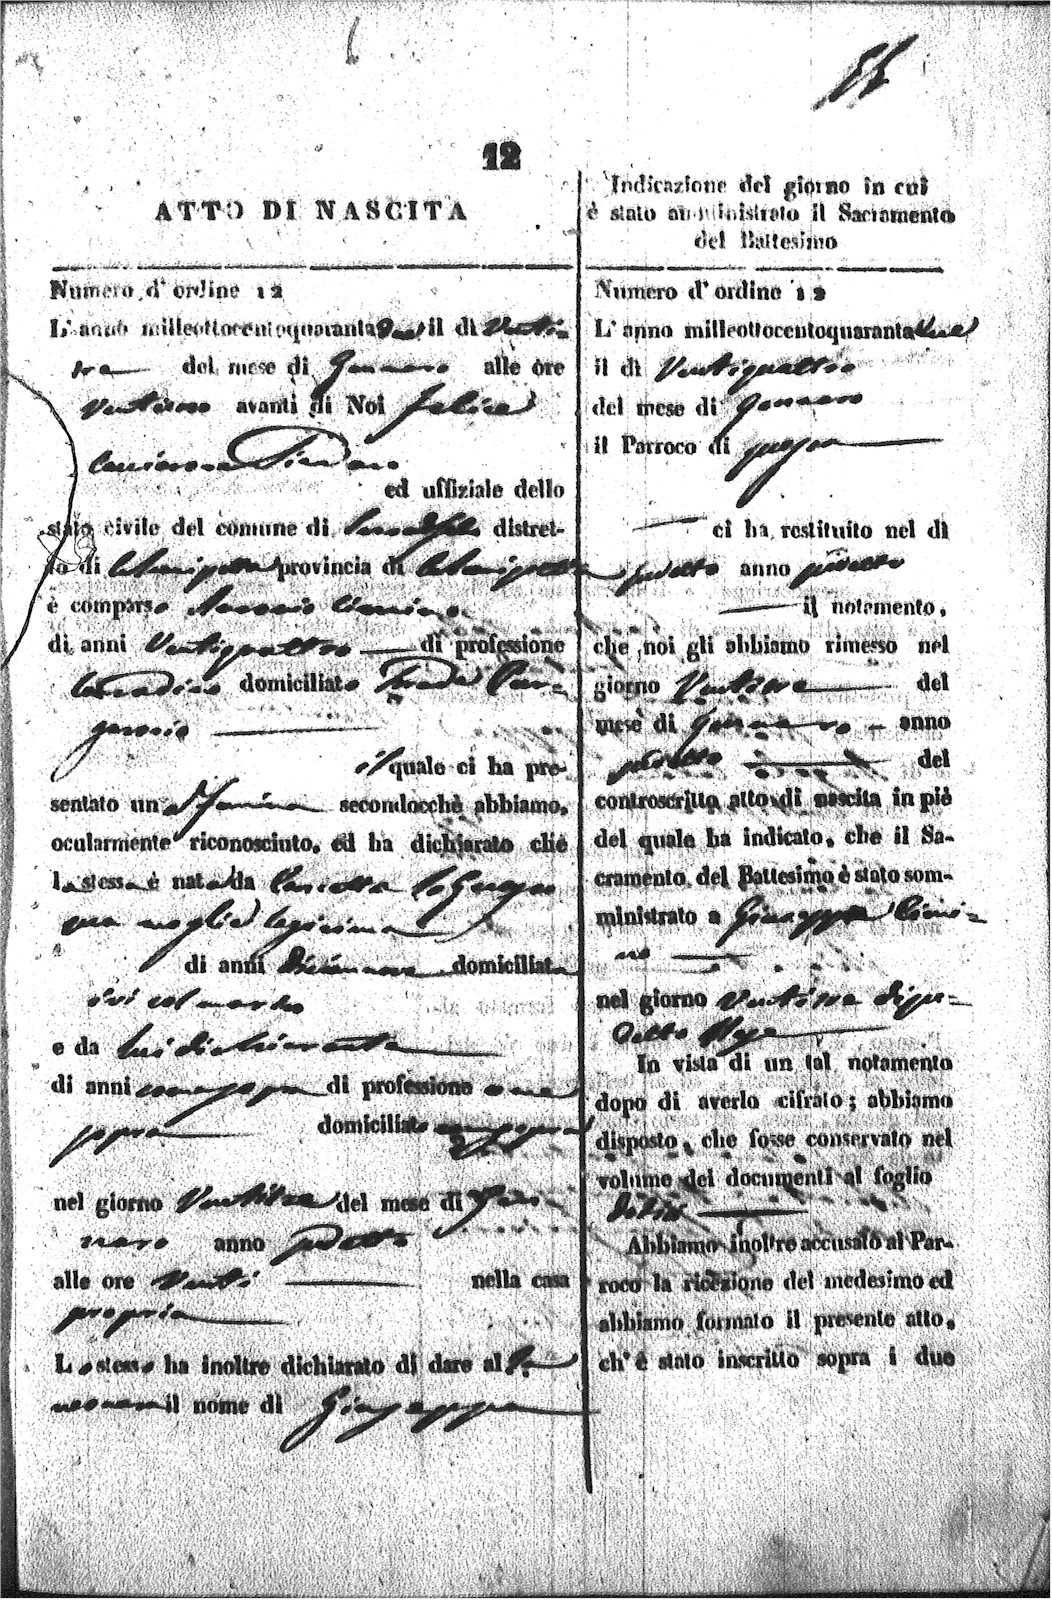 12
ATTO DI NASCITA
Numero d'ordine 12
L'anno milleottocentoquarantadue il di Venti
tre del mese di Gennaro alle ore
Ventuno avanti di Noi Felice
ed uffiziale dello
stato civile del comune di distret-
to di provincia di
è comparso Cimino
di anni Ventiquattro di professione
domiciliato Strada
il quale ci ha pre-
sentato una secondocchè abbiamo,
ocularmente riconosciuto, ed ha dichiarato che
la stessa è nata da Concetta
sua moglie legitima
di anni Diecinnove domiciliata
ivi col marito
e da lui dichiarante
di anni come sopra di professione come
sopra domiciliato come sopra
nel giorno Ventitre del mese di Gen
naro anno sudetto
alle ore Venti nella casa
propria
Lo stesso ha inoltre dichiarato di dare alla
neonata il nome di Giuseppa
Indicazione del giorno in cui
è stato amministrato il Sacramento
del Battesimo
Numero d'ordine 12
L'anno milleottocentoquarantadue
il di Ventiquattro
del mese di Gennaro
il Parroco di
ci ha restituito nel di
sudetto anno sudetto
il notamento,
che noi gli abbiamo rimesso nel
giorno Ventitre del
mese di Gennaro anno
sudetto del
controscritto atto di nascita in piè
del quale ha indicato, che il Sa-
cramento del Battesimo è stato som-
ministrato a Giuseppa Cimi-
no
nel giorno Ventitre
detto Mese
In vista di un tal notamento
dopo di averlo cifrato; abbiamo
disposto, che fosse conservato nel
volume dei documenti al foglio
Abbiamo inoltre accusato al Par-
roco la ricezione del medesimo ed
abbiamo formato il presente atto,
ch'è stato inscritto sopra i due